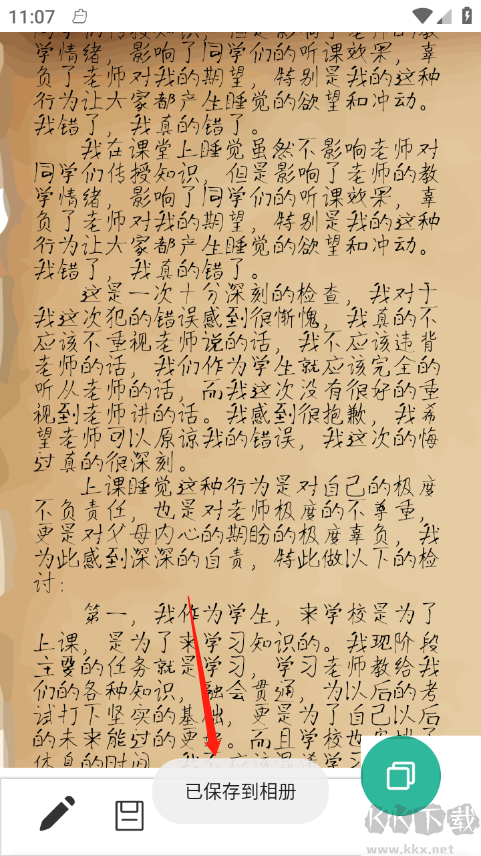 11:07
同学们传授知识，但是影响了老师的教
学情绪，影响了同学们的听课效果，辜
负了老师对我的期望，特别是我的这种
行为让大家都产生睡觉的欲望和冲动。
我错了，我真的错了。
我在课堂上睡觉虽然不影响老师对
同学们传授知识，但是影响了老师的教
学情绪，影响了同学们的听课效果，辜
负了老师对我的期望，特别是我的这种
行为让大家都产生睡觉的欲望和冲动。
我错了，我真的错了。
这是一次十分深刻的检查，我对于
我这次犯的错误感到很惭愧，我真的不
应该不重视老师说的话，我不应该违背
老师的话，我们作为学生就应该完全的
听从老师的话，而我这次没有很好的重
视到老师讲的话。我感到很抱歉，我希
望老师可以原谅我的错误，我这次的悔
过真的很深刻。
上课睡觉这种行为是对自己的极度
不负责任，也是对老师极度的不尊重，
更是对父母内心的期盼的极度辜负，我
为此感到深深的自责，特此做以下的检
讨：
第一，我作为学生，来学校是为了
上课，是为了来学习知识的。我现阶段
主要的任务就是学习，学习老师教给我
们的各种知识，融会贯通，为以后的考
试打下坚实的基础，更是为了自己以后
的未来能过的更好。而且学校也
体息的时间，我不应该混淆学习
已保存到相册
KK下载
www.kkx.net